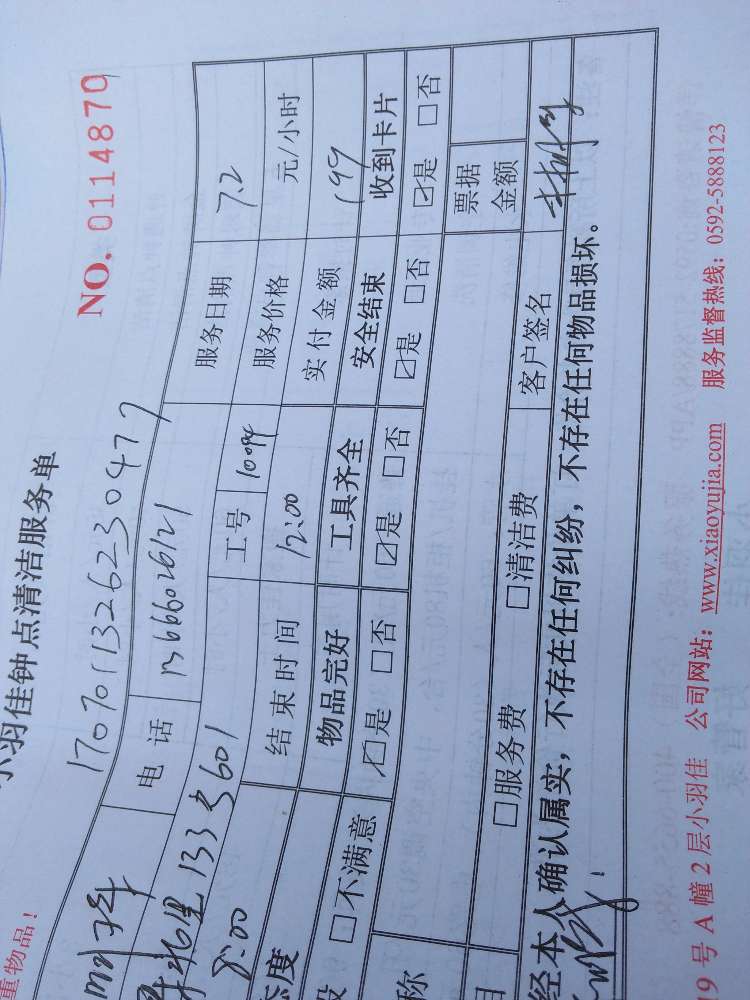 重物品!
小羽佳钟点清洁服务单
NO. 0114870
170701132623047
电话 13666026121 服务日期 7.2
133 601 工号 1094 服务价格 元/小时
8:00 结束时间 12:00 实付金额 199
态度 物品完好 工具齐全 安全结束 收到卡片
□不满意 ☑是 □否 ☑是 □否 ☑是 □否 ☑是 □否
称 票据金额
目 □服务费 □清洁费 客户签名
经本人确认属实,不存在任何纠纷,不存在任何物品损坏。
19号A幢2层小羽佳 公司网站:www.xiaoyujia.com 服务监督热线:0592-5888123